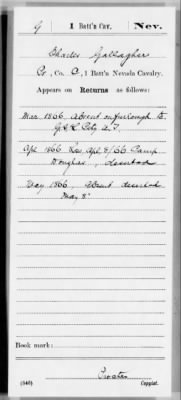 G | 1 Batt'n Cav. | Nev.
Charles Gallagher
Pv., Co. C, 1 Batt'n Nevada Cavalry.
Appears on Returns as follows:
Mar 1866, absent on furlough to
G.S.L. City U.T.
Apl 1866 Loss Apl 8/66 Camp
Douglas, deserted
May 1866, absent deserted
May 8"
Book mark:
(546)
Copyist.